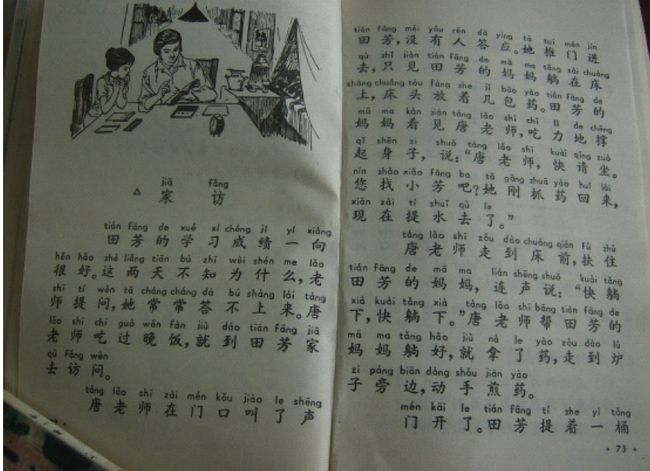 jiā fǎng
△家 访
tián fāng de xué xí chéng jì yí xiàng
田芳的学习成绩一向
hěn hǎo zhè liǎng tiān bù zhī wèi shén me lǎo
很好。这两天不知为什么,老
shī tí wèn tā cháng cháng dá bú shàng lái táng
师提问,她常常答不上来。唐
lǎo shī chī guò wǎn fàn jiù dào tián fāng jiā
老师吃过晚饭,就到田芳家
qù fǎng wèn
去访问。
táng lǎo shī zài mén kǒu jiào le shēng
唐老师在门口叫了声
tián fāng méi yǒu rén dā yìng tā tuī mén jìn
田芳,没有人答应。她推门进
qù zhǐ jiàn tián fāng de mā ma tǎng zài chuáng
去,只见田芳的妈妈躺在床
shàng chuáng tóu fàng zhe jǐ bāo yào tián fāng de
上,床头放着几包药。田芳的
mā ma kàn jiàn táng lǎo shī chī lì de chēng
妈妈看见唐老师,吃力地撑
qǐ shēn zi shuō táng lǎo shī kuài qǐng zuò
起身子,说:“唐老师,快请坐。
nín zhǎo xiǎo fāng ba tā gāng zhuā yào huí lái
您找小芳吧?她刚抓药回来,
xiàn zài tí shuǐ qù le
现在提水去了。”
táng lǎo shī zǒu dào chuáng qián fú zhù
唐老师走到床前,扶住
tián fāng de mā ma lián shēng shuō kuài tǎng
田芳的妈妈,连声说:“快躺
xià kuài tǎng xià táng lǎo shī bāng tián fāng de
下,快躺下。”唐老师帮田芳的
mā ma tǎng hǎo jiù ná le yào zǒu dào lú
妈妈躺好,就拿了药,走到炉
zi páng biān dòng shǒu jiān yào
子旁边,动手煎药。
mén kāi le tián fāng tí zhe yì tǒng
门开了。田芳提着一桶
· 73 ·